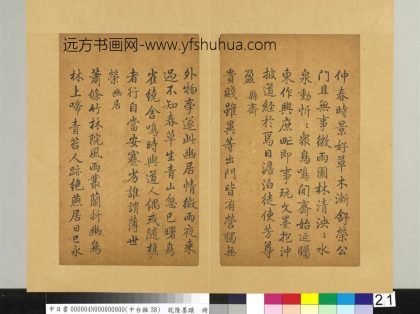 远方书画网-www.yfshuhua.com
仲春時景好草木漸舒榮公
門且無事微雨園林清泱泱水
泉動忻忻衆鳥鳴閒齋始延矚
東作興庶甿即事玩文墨抱沖
披道經於焉日淡泊徒使芳尊
盈 縣齋
貴賤雖異等出門皆有營獨無
外物牽遂此幽居情微雨夜來
過不知春草生青山忽已曙鳥
雀繞舍鳴時與道人偶或隨樵
者行自當安蹇劣誰謂薄世
榮 幽居
蕭條竹林院風雨叢蘭折幽鳥
林上啼青苔人跡絕燕居日已永
000004N000000000 乾隆墨蹟 冊
21